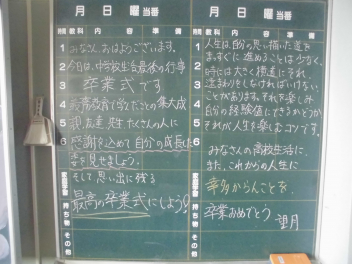 月 日 曜 当番
時間 教科 内容 準備
1 みなさん、おはようございます。
2 今日は、中学校生活最後の行事
3 卒業式です
4 義務教育で学んだことの集大成
5 親、友達、先生、たくさんの人に
6 感謝を込めて自分の成長した
姿を見せましょう。
家庭学習 そして思い出に残る
持ち物 最高の卒業式にしよう!
その他
月 日 曜 当番
時間 教科 内容 準備
1 人生は、自分の思い描いた道を
2 まっすぐに進めることは少なく、
3 時には大きく横道にそれ、
遠まわりをしなければいけない
4 ことがあります。それを楽しみ
5 自分の経験値にできるかどうか
6 それが人生を楽しむコツです。
みなさんの高校生活に、
また、これからの人生に
家庭学習 幸多からんことを
持ち物 卒業おめでとう 望月
その他